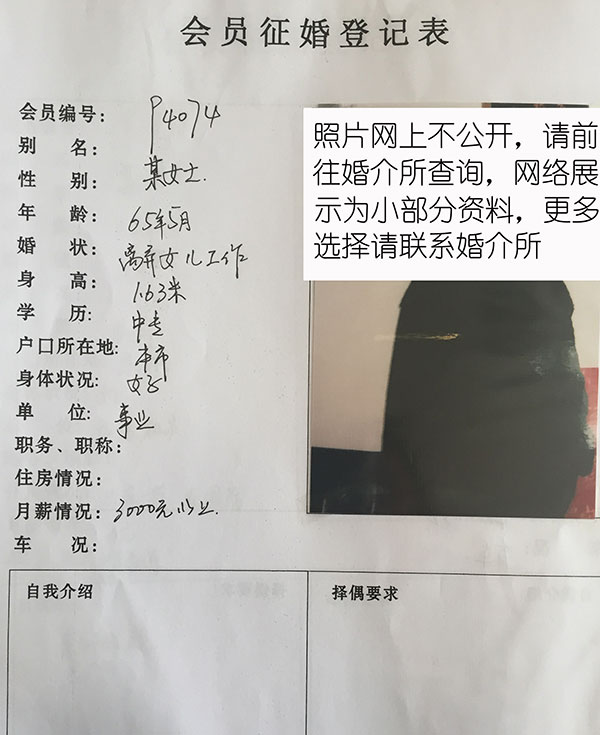 会员征婚登记表
会员编号: P4074
别 名:
性 别: 某女士.
年 龄: 65年5月
婚 状: 离异女儿工作
身 高: 1.63米
学 历: 中专
户口所在地: 本市
身体状况: 好
单 位: 事业
职务、职称:
住房情况:
月薪情况: 3000元以上.
车 况:
照片网上不公开，请前
往婚介所查询，网络展
示为小部分资料，更多
选择请联系婚介所
自我介绍
择偶要求